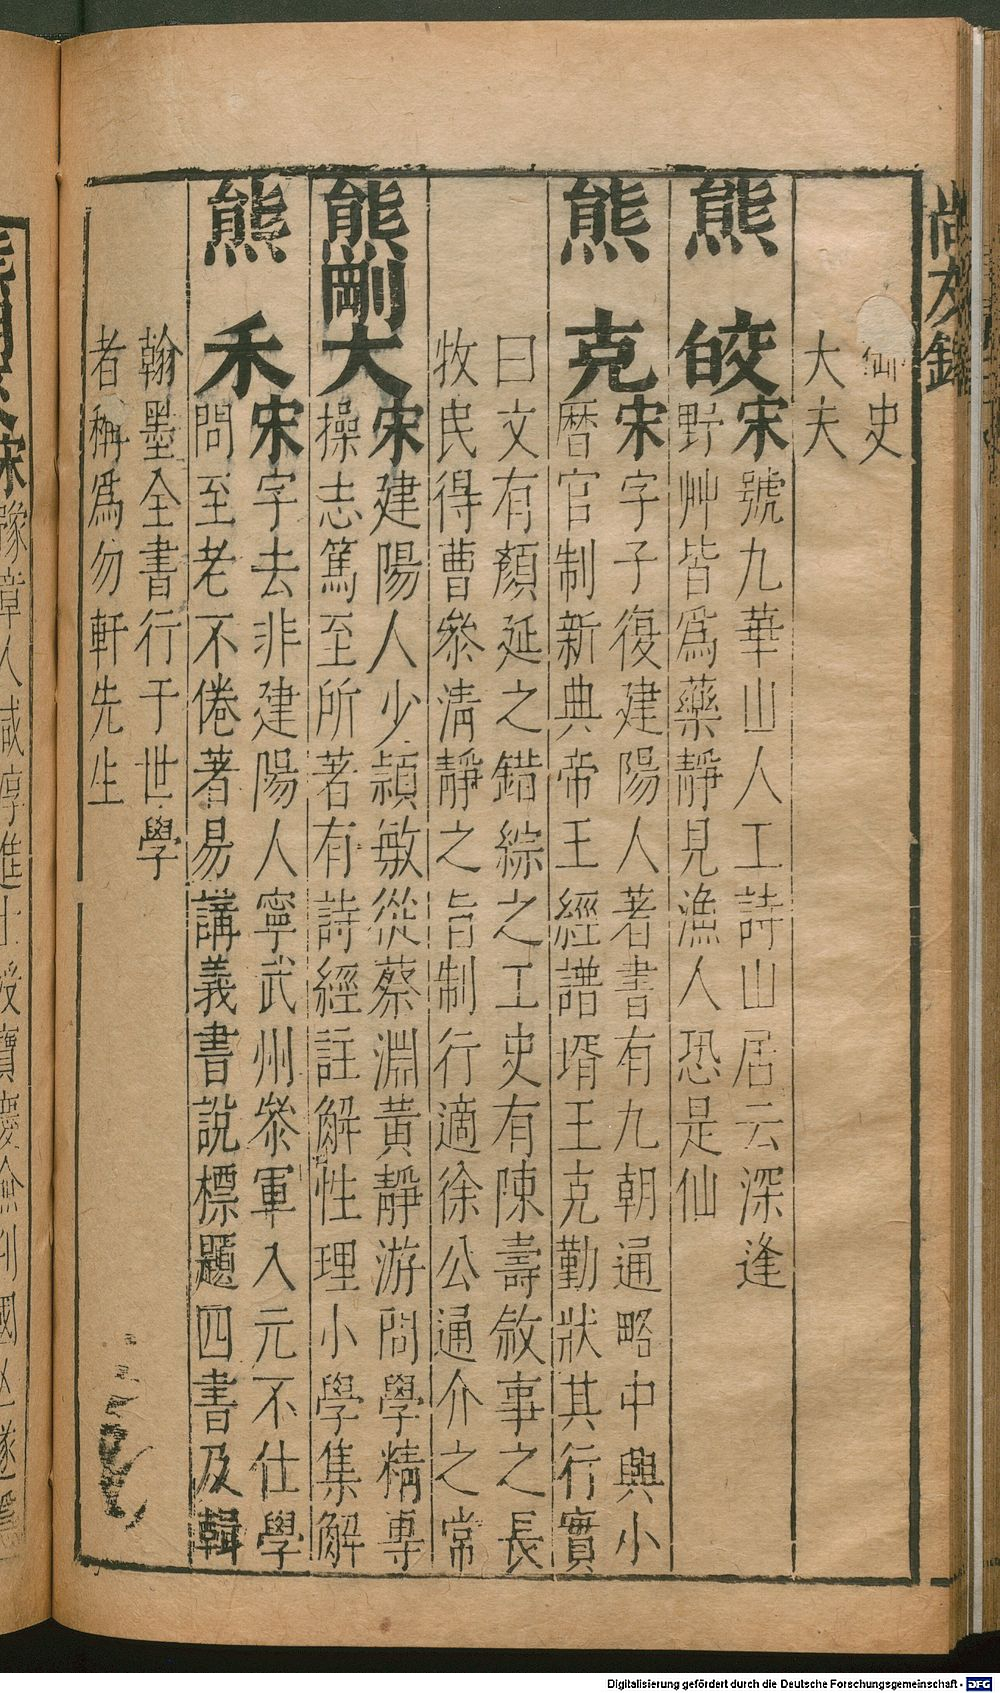 尚友錄
御史
大夫
熊皎宋號九華山人工詩山居云深逢
野艸皆爲藥靜見漁人恐是仙
熊克宋字子復建陽人著書有九朝通略中興小
曆官制新典帝王經譜壻王克勤狀其行實
曰文有顏延之錯綜之工史有陳壽敘事之長
牧民得曹叅淸靜之旨制行適徐公通介之常
熊剛大宋建陽人少穎敏從蔡淵黃靜游問學精專
操志篤至所著有詩經註解性理小學集解
熊禾宋字去非建陽人寧武州叅軍入元不仕學
問至老不倦著易講義書說標題四書及輯
翰墨全書行于世學
者稱爲勿軒先生
宋豫章人咸淳進士授寶慶僉判國亡遂隱
Digitalisierung gefördert durch die Deutsche Forschungsgemeinschaft - DFG